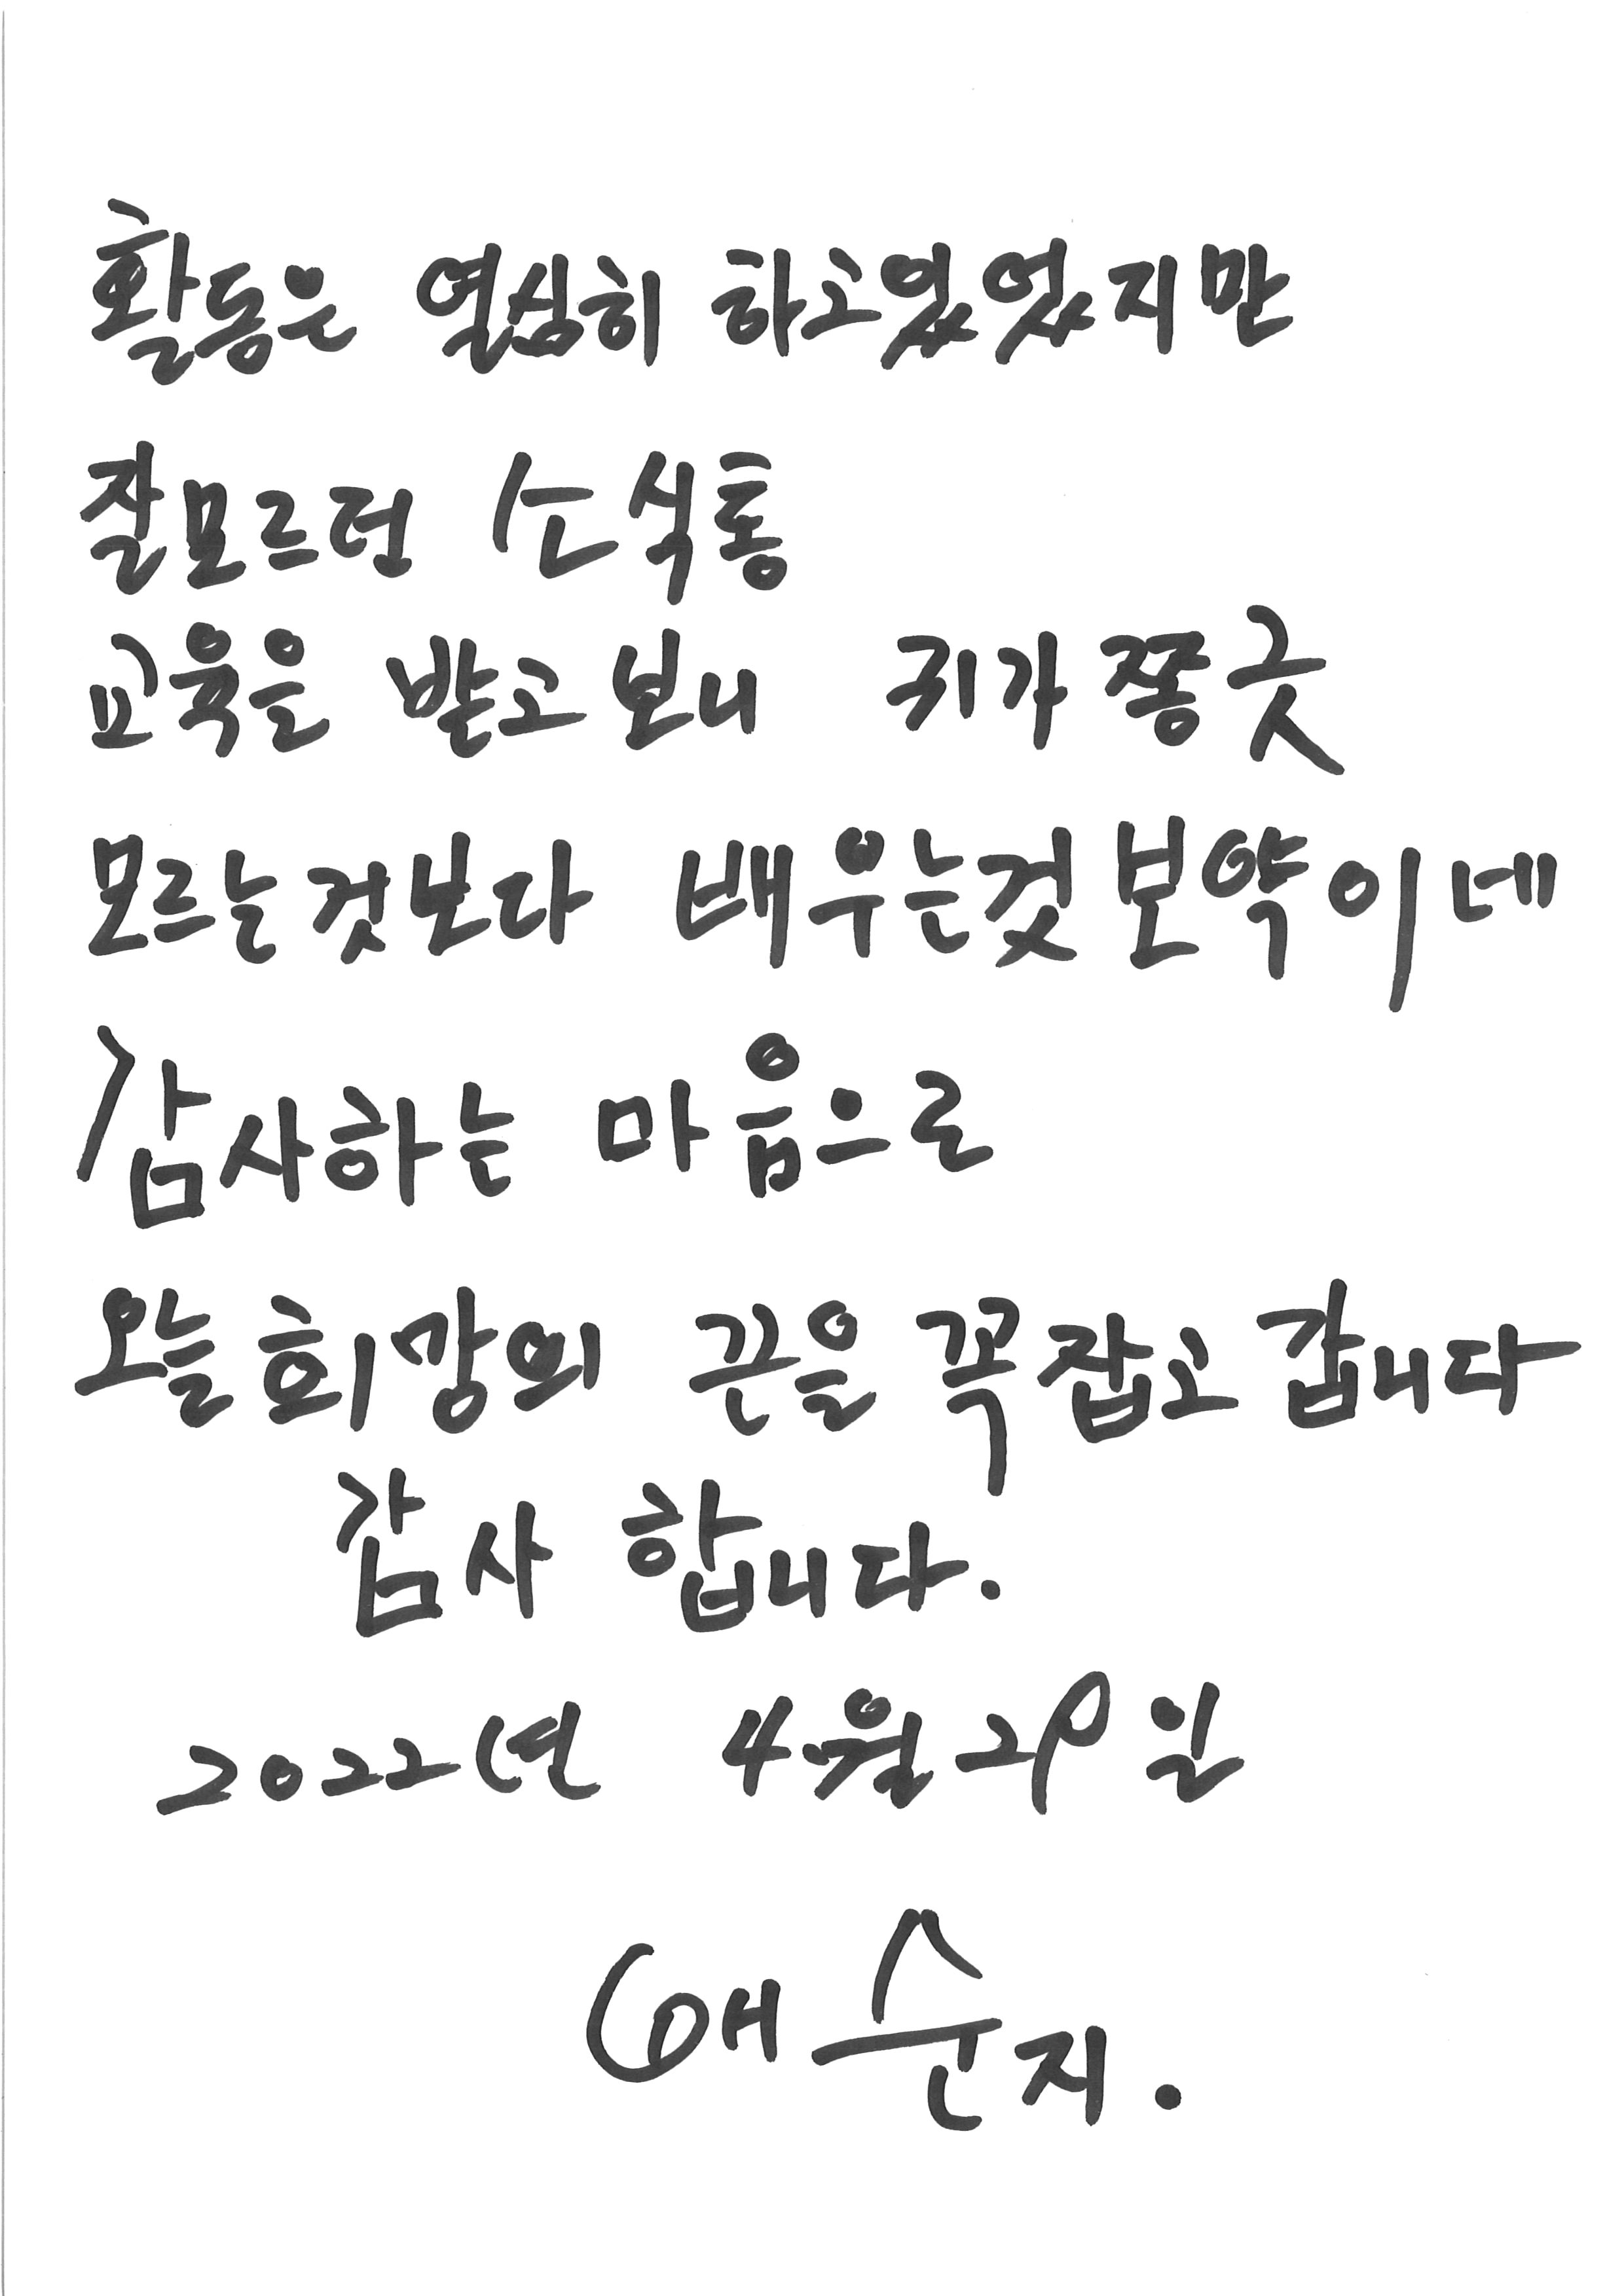 활동은 열심히 하고있었지만
잘모르던 소식통
교육을 받고보니 귀가쫑긋
모르는것보다 배우는것보약이네
감사하는 마음으로
오늘희망의 끈을 꼭잡고갑니다
감사 합니다.
2022년 4월 29일
순지.